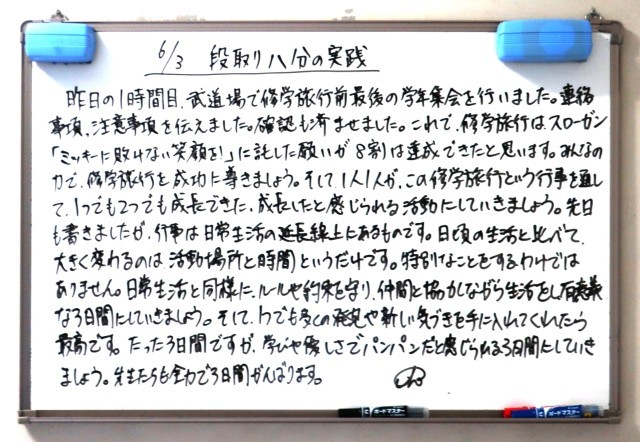 6/3 段取り八分の実践
昨日の1時間目、武道場で修学旅行前最後の学年集会を行いました。連絡
事項、注意事項を伝えました。確認も済ませました。これで、修学旅行は、スローガン
「ミッキーに負けない笑顔を!」に託した願いが8割は達成できたと思います。みんなの
力で、修学旅行を成功に導きましょう。そして、1人1人が、この修学旅行という行事を通し
て、1つでも2つでも成長できた、成長したと感じられる活動にしていきましょう。先日
も書きましたが、行事は日常生活の延長線上にあるものです。日頃の生活と比べて、
大きく変わるのは、活動場所と時間というだけです。特別なことをするわけでは
ありません。日常生活と同様に、ルールや約束を守り、仲間と協力しながら生活をし、有意義
な3日間にしていきましょう。そして、1つでも多くの発見や新しい気づきを手に入れてくれたら
最高です。たった3日間ですが、学びや優しさでパンパンだと感じられる3日間にしていき
ましょう。先生たちも全力で3日間がんばります。
ボードマスター
ボードマスター